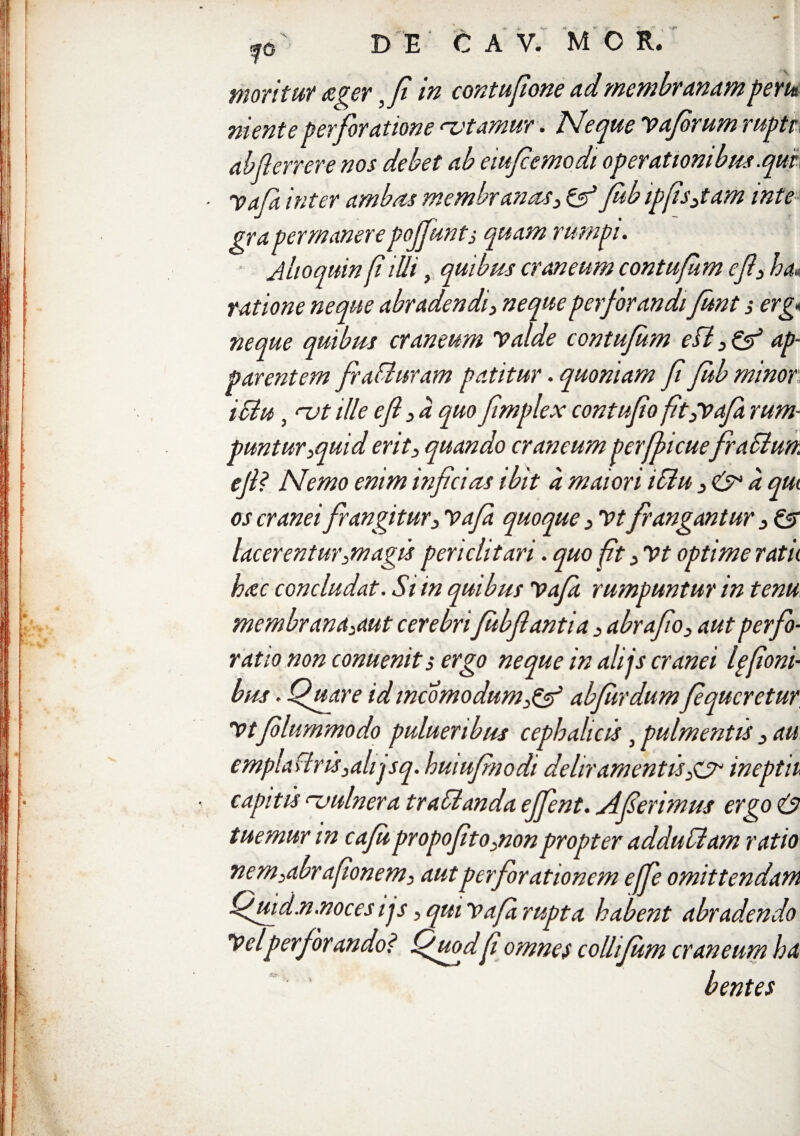 70 DE CAV. MOR.
moritur æger, si in contusione ad membranam peru
niente perforatione vtamur. Neque vasorum rupti
absterrere nos debet ab eiuscemodi operationibus.qui
vasa inter ambas membranas, & sub ipsis,tam inte
gra permanere possunt; quam rumpi.
Alioquin si illi, quibus craneum contusum est, ha
ratione neque abradendi, neque perforandi sunt; erg
neque quibus craneum valde contusum est, & ap-
parentem fracturam patitur. quoniam si sub minor
ictu, vt ille est, à quo simplex contusio fit,vasa rum-
puntur,quid erit, quando craneum perspicue fractum
est? Nemo enim inficias ibit à maiori ictu, & à qu
os cranei frangitur, vasa quoque, vt frangantur, &
lacerentur,magis periclitari. quo fit, vt optime ratio
hæc concludat. Si in quibus vasa rumpuntur in tenu
membrana,aut cerebri substantia, abrasio, aut perfo-
ratio non conuenit; ergo neque in alijs cranei lęsioni-
bus. Quare id incōmodum,& absurdum sequeretur
vt solummodo pulueribus cephalicis, pulmentis, au
emplastris,alijsq. huiusmodi deliramentis,& ineptii
capitis vulnera tractanda essent. Asserimus ergo &
tuemur in casu proposito,non propter adductam ratio
nem,abrasionem, aut perforationem esse omittendam
Quid.n.noces ijs, qui vasa rupta habent abradendo
vel perforando? Quod si omnes collisum craneum ha
bentes